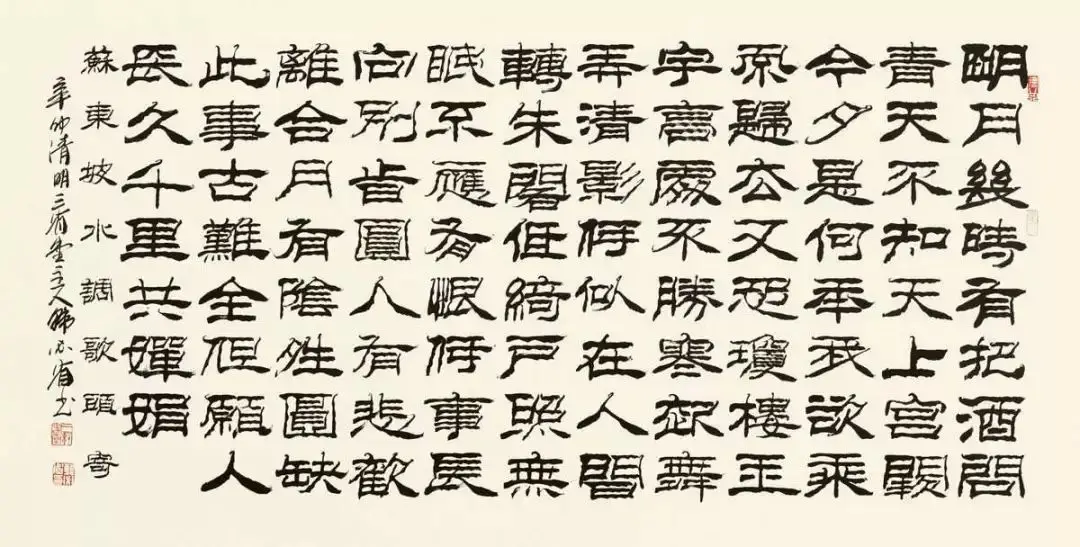 明月幾時有把酒問
青天不知天上宮闕
今夕是何年我欲乘
風歸去又恐瓊樓玉
宇高處不勝寒起舞
弄清影何似在人間
轉朱閣低綺戶照無
眠不應有恨何事長
向別旹圓人有悲歡
離合月有陰夝圓缺
此事古難全但願人
長久千里共嬋娟
蘇東坡水調歌頭
辛卯清明三省堂主人省书